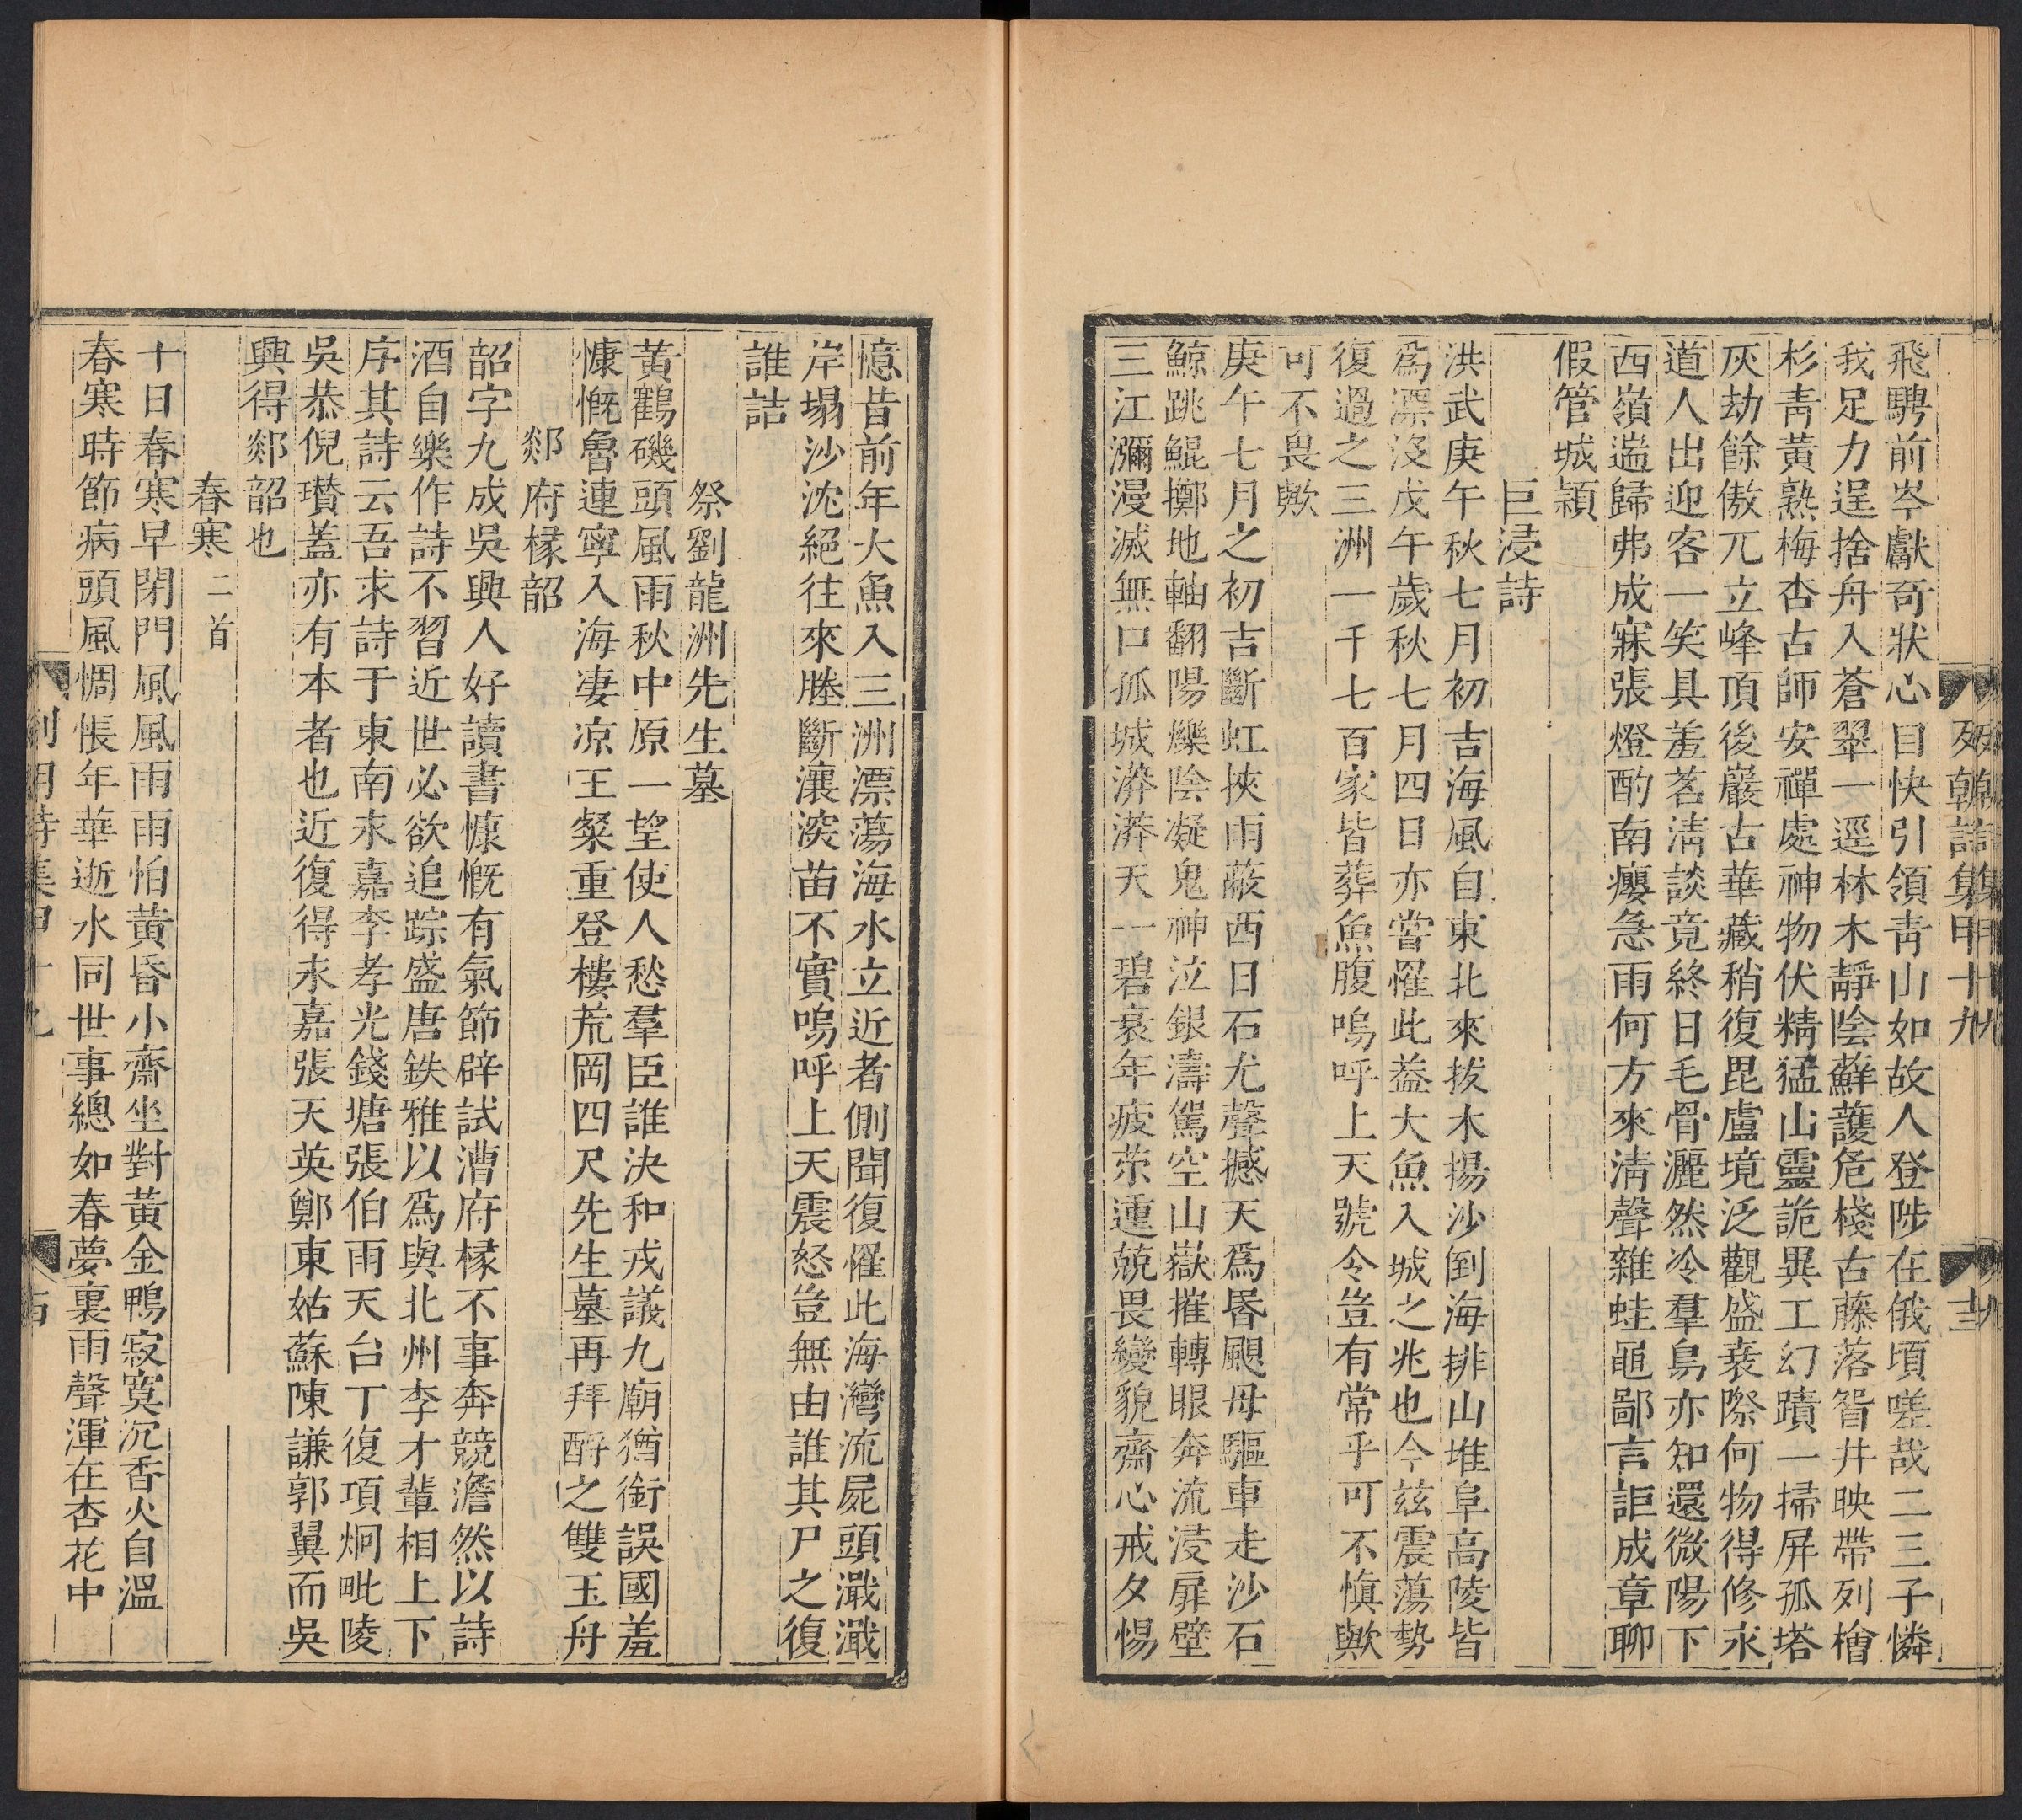 列朝詩集甲十九
十三
飛騁前岑獻奇狀心目快引領青山如故人登陟在俄頃嗟哉二三子憐
我足力逞捨舟入蒼翠一逕林木靜陰蘚護危棧古藤落眢井映帶列檜
杉青黃熟梅杏古師安禪處神物伏精猛山靈詭異工幻蹟一掃屏孤塔
灰劫餘傲兀立峰頂後巖古華藏稍復毘盧境泛觀盛衰際何物得修永
道人出迎客一笑具羞茗淸談竟終日毛骨灑然冷羣鳥亦知還微陽下
西嶺遄歸弗成寐張燈酌南癭急雨何方來淸聲雜蛙黽鄙言詎成章聊
假管城穎
巨浸詩
洪武庚午秋七月初吉海風自東北來拔木揚沙倒海排山堆阜高陵皆
爲漂沒戊午歲秋七月四日亦嘗罹此葢大魚入城之兆也今茲震蕩勢
復過之三洲一千七百家皆葬魚腹嗚呼上天號令豈有常乎可不愼歟
可不畏歟
庚午七月之初吉斷虹挾雨蔽西日石尤聲撼天爲昬颶母驅車走沙石
鯨跳鯤擲地軸翻陽爍陰凝鬼神泣銀濤駕空山嶽摧轉眼奔流浸扉壁
三江瀰漫滅無口孤城漭漭天一碧衰年疲苶連兢畏變貌齋心戒夕惕
憶昔前年大魚入三洲漂蕩海水立近者側聞復罹此海灣流屍頭濈濈
岸塌沙沈絕往來塍斷瀼淤苗不實嗚呼上天震怒豈無由誰其尸之復
誰詰
祭劉龍洲先生墓
黃鶴磯頭風雨秋中原一望使人愁羣臣誰決和戎議九廟猶銜誤國羞
慷慨魯連寧入海凄凉王粲重登樓荒岡四尺先生墓再拜酹之雙玉舟
郯府椽韶
韶字九成吳興人好讀書慷慨有氣節辟試漕府椽不事奔競澹然以詩
酒自樂作詩不習近世必欲追踪盛唐鉄雅以爲與北州李才輩相上下
序其詩云吾求詩于東南永嘉李孝光錢塘張伯雨天台丁復項炯毗陵
吳恭倪瓚葢亦有本者也近復得永嘉張天英鄭東姑蘇陳謙郭翼而吳
興得郯韶也
春寒二首
十日春寒早閉門風風雨雨怕黃昏小齋坐對黃金鴨寂寞沉香火自溫
春寒時節病頭風惆悵年華逝水同世事總如春夢裏雨聲渾在杏花中